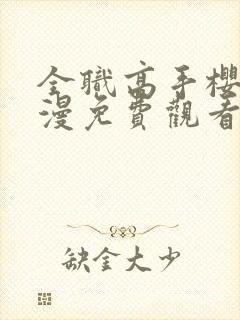 全職高手櫻
漫免費觀看
缺金大少